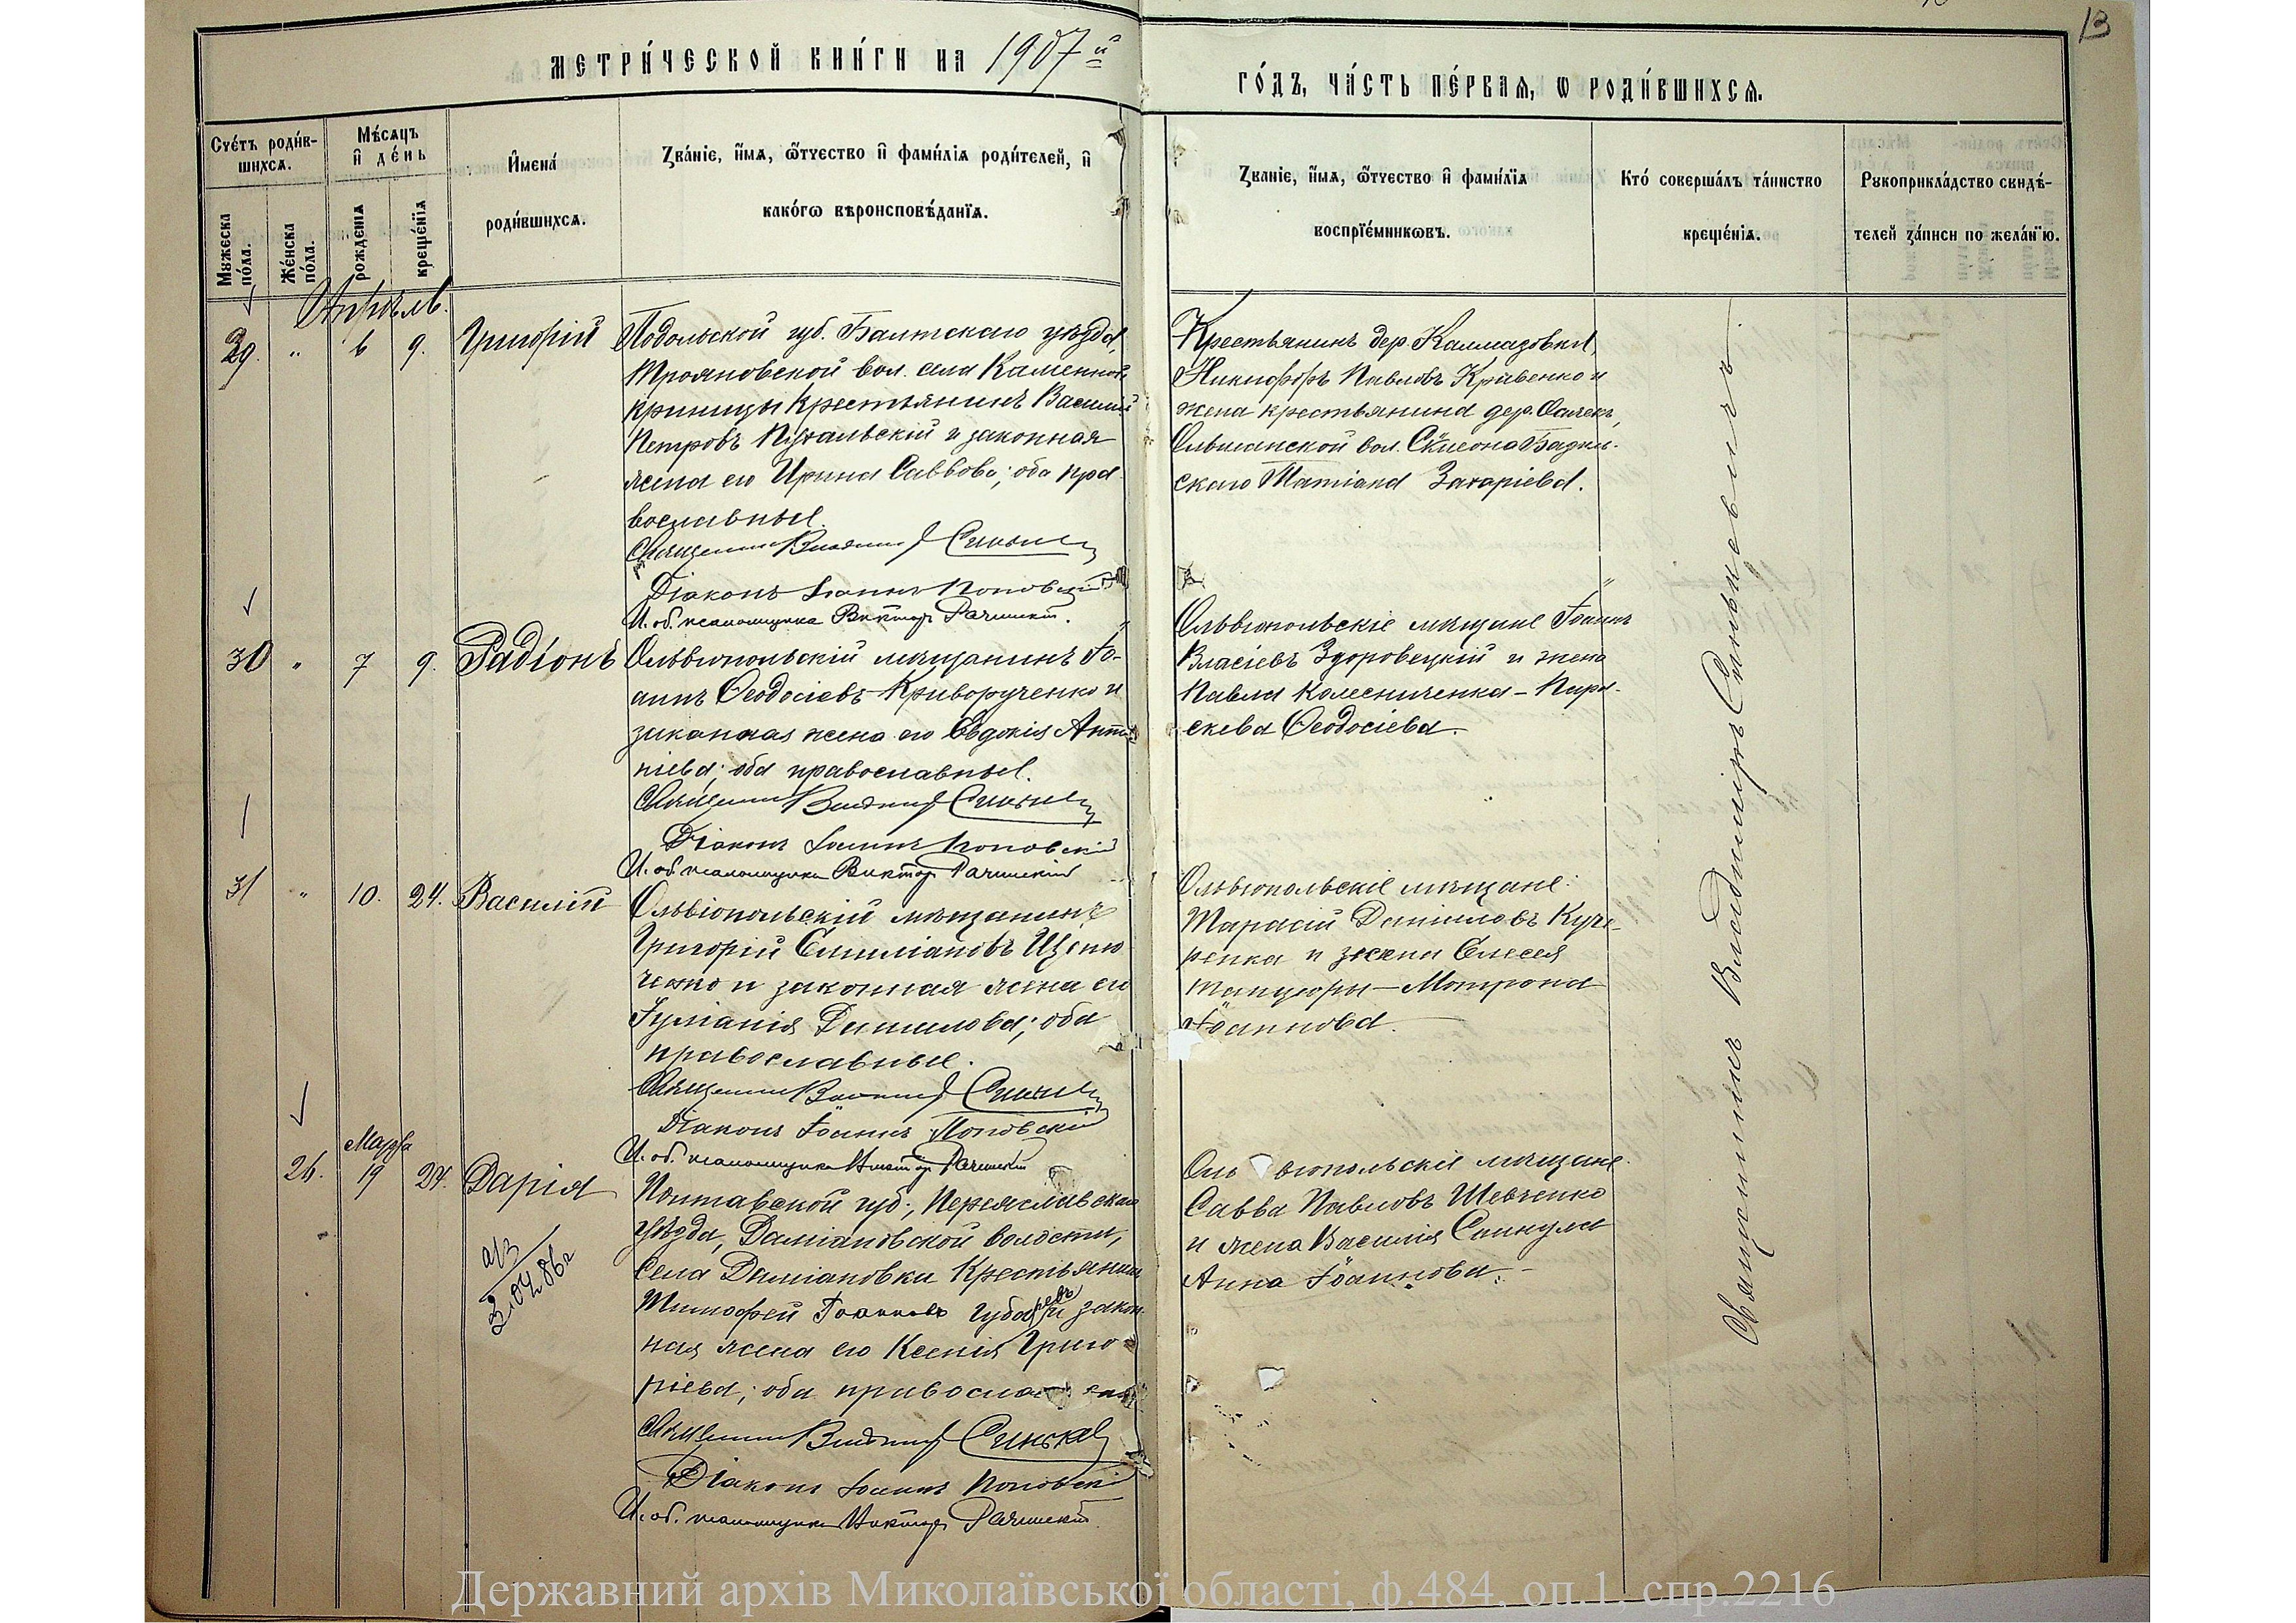 13
МЕТРИ́ЧЕСКОЙ КНИ́ГИ НА 1907й
ГО́ДЪ, ЧА́СТЬ ПЕ́РВАѦ, Ѡ РОДИ́ВШИХСѦ.
Сче́тъ роди́в-
шихсѧ.
Мужеска по́ла.
Же́нска по́ла.
Мѣ́сѧцъ
и҆ де́нь
рожденїѧ
креще́нїѧ
И҆мена́
роди́вшихсѧ.
Зва́нїе, и҆́мѧ, ѻ҆́тчество и҆ фами́лїѧ роди́телей, и҆
како́гѡ вѣроисповѣ́данїѧ.
Зва́нїе, и҆́мѧ, ѻ҆́тчество и҆ фами́лїѧ
воспрїе́мникѡвъ.
Кто́ соверша́лъ та́инство
креще́нїѧ.
Рукоприкла́дство свидѣ́-
телей за́писи по жела́нїю.
Апрѣль.
29. " 6 9. Григорій
Подольской губ. Балтскаго уѣзда,
Трояновской вол. села Каменной
криницы крестьянинъ Василий
Петровъ и законная
жена его Ирина Саввова; оба пра-
вославные.
Священникъ Владимир Синькевич
Діаконъ Іоаннъ Поповскій
И. об. псаломщика Викторъ Рачинскій.
Крестьянинъ дер. Калмазовки,
Никифоръ Павловъ Кравенко и
жена крестьянина дер.
Ольшанской вол. Симеона
скаго Татіана Захаріева.
30 " 7 9. Радіонъ
Ольвіопольскій мѣщанинъ Іо-
аннъ Ѳеодосіевъ Криворученко и
законная жена его Евдокія Анто-
ніева; оба православные.
Священникъ Владимир Синькевич
Діаконъ Іоаннъ Поповскій
И. об. псаломщика Викторъ Рачинскій
Ольвіопольскіе мѣщане Іоаннъ
Власіевъ Здоровецкій и жена
Павла Колесниченка – Пара-
скева Ѳеодосіева.
31 " 10. 24. Василій
Ольвіопольскій мѣщанинъ
Григорій Емиліановъ
и законная жена его
Іуліанія Данилова; оба
православные.
Священникъ Владимир Синькевич
Діаконъ Іоаннъ Поповскій
И. об. псаломщика Викторъ Рачинскій
Ольвіопольскіе мѣщане:
Тарасій Даніиловъ Куче-
ренка и жена Елисея
Танцюры – Матрона
Іоаннова.
Марта
26. 19 24. Дарія
Полтавской губ., Переяславскаго
уѣзда, Даміановской волости,
села Даміановки крестьянинъ
Тимофей Іоанновъ Губаревъ и закон-
ная жена его Ксенія Григо-
ріева; оба православные
Священникъ Владимир Синькевич
Діаконъ Іоаннъ Поповскій
И. об. псаломщика Викторъ Рачинскій
Ольвіопольскіе мѣщане
Савва Павловъ Шевченко
и жена Василія Скикула
Анна Іоаннова.
3.04.86г
Священникъ Владиміръ Синькевичъ.
Державний архів Миколаївської області, ф.484, оп.1, спр.2216